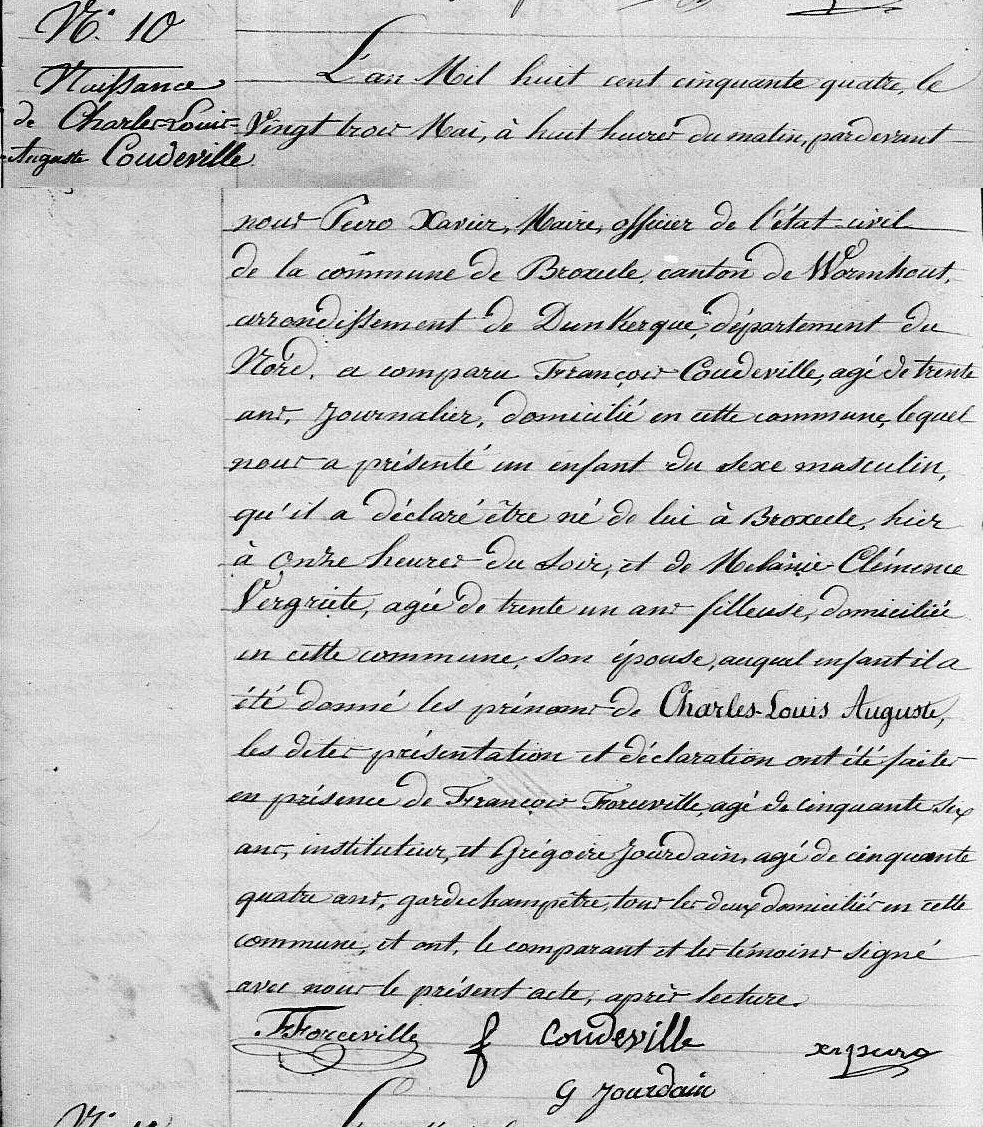 N.° 10
Naissance
de Charles-Louis-
Auguste Coudeville
L'an Mil huit cent cinquante quatre, le
Vingt trois Mai, à huit heures du matin, pardevant
nous Peero Xavier, Maire, officier de l'état-civil
de la commune de Broxeele, canton de Wormhout,
arrondissement de Dunkerque, département du
Nord, a comparu François Coudeville, agé de trente
ans, Journalier, domicilié en cette commune, lequel
nous a présenté un enfant du sexe masculin,
qu'il a déclaré être né de lui à Broxeele, hier
à onze heures du soir, et de Mélanie Clémence
Vergriete, agée de trente un ans filleuse, domiciliée
en cette commune, son épouse, auquel enfant il a
été donné les prénoms de Charles-Louis Auguste,
les dites présentation et déclaration ont été faites
en présence de François Forceville, agé de cinquante six
ans, instituteur, et Grégoire Jourdain, agé de cinquante
quatre ans, gardechampêtre, tous les deux domiciliés en cette
commune, et ont, le comparant et les témoins signé
avec nous le présent acte, après lecture.
F Forceville f Coudeville
G Jourdain